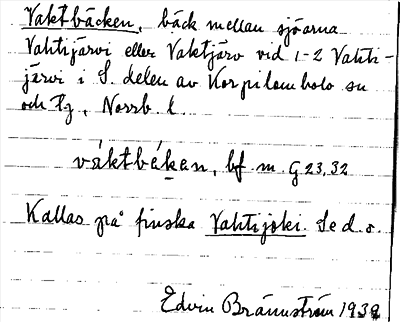 Vaktbäcken, bäck mellan sjöarna
Vahtijärvi eller Vaktjärv vid 1-2 Vahti-
järvi i S. delen av Korpilombolo sn
och tg, Norrb. l.
váktbä́ken, bf m. G 23,32
Kallas på finska Vahtijoki. Se d.o.
Edvin Brännström 1938